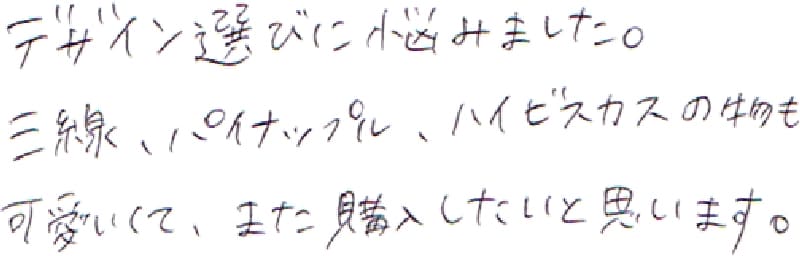 デザイン選びに悩みました。
三線、パイナップル、ハイビスカスの物も
可愛いくて、また購入したいと思います。